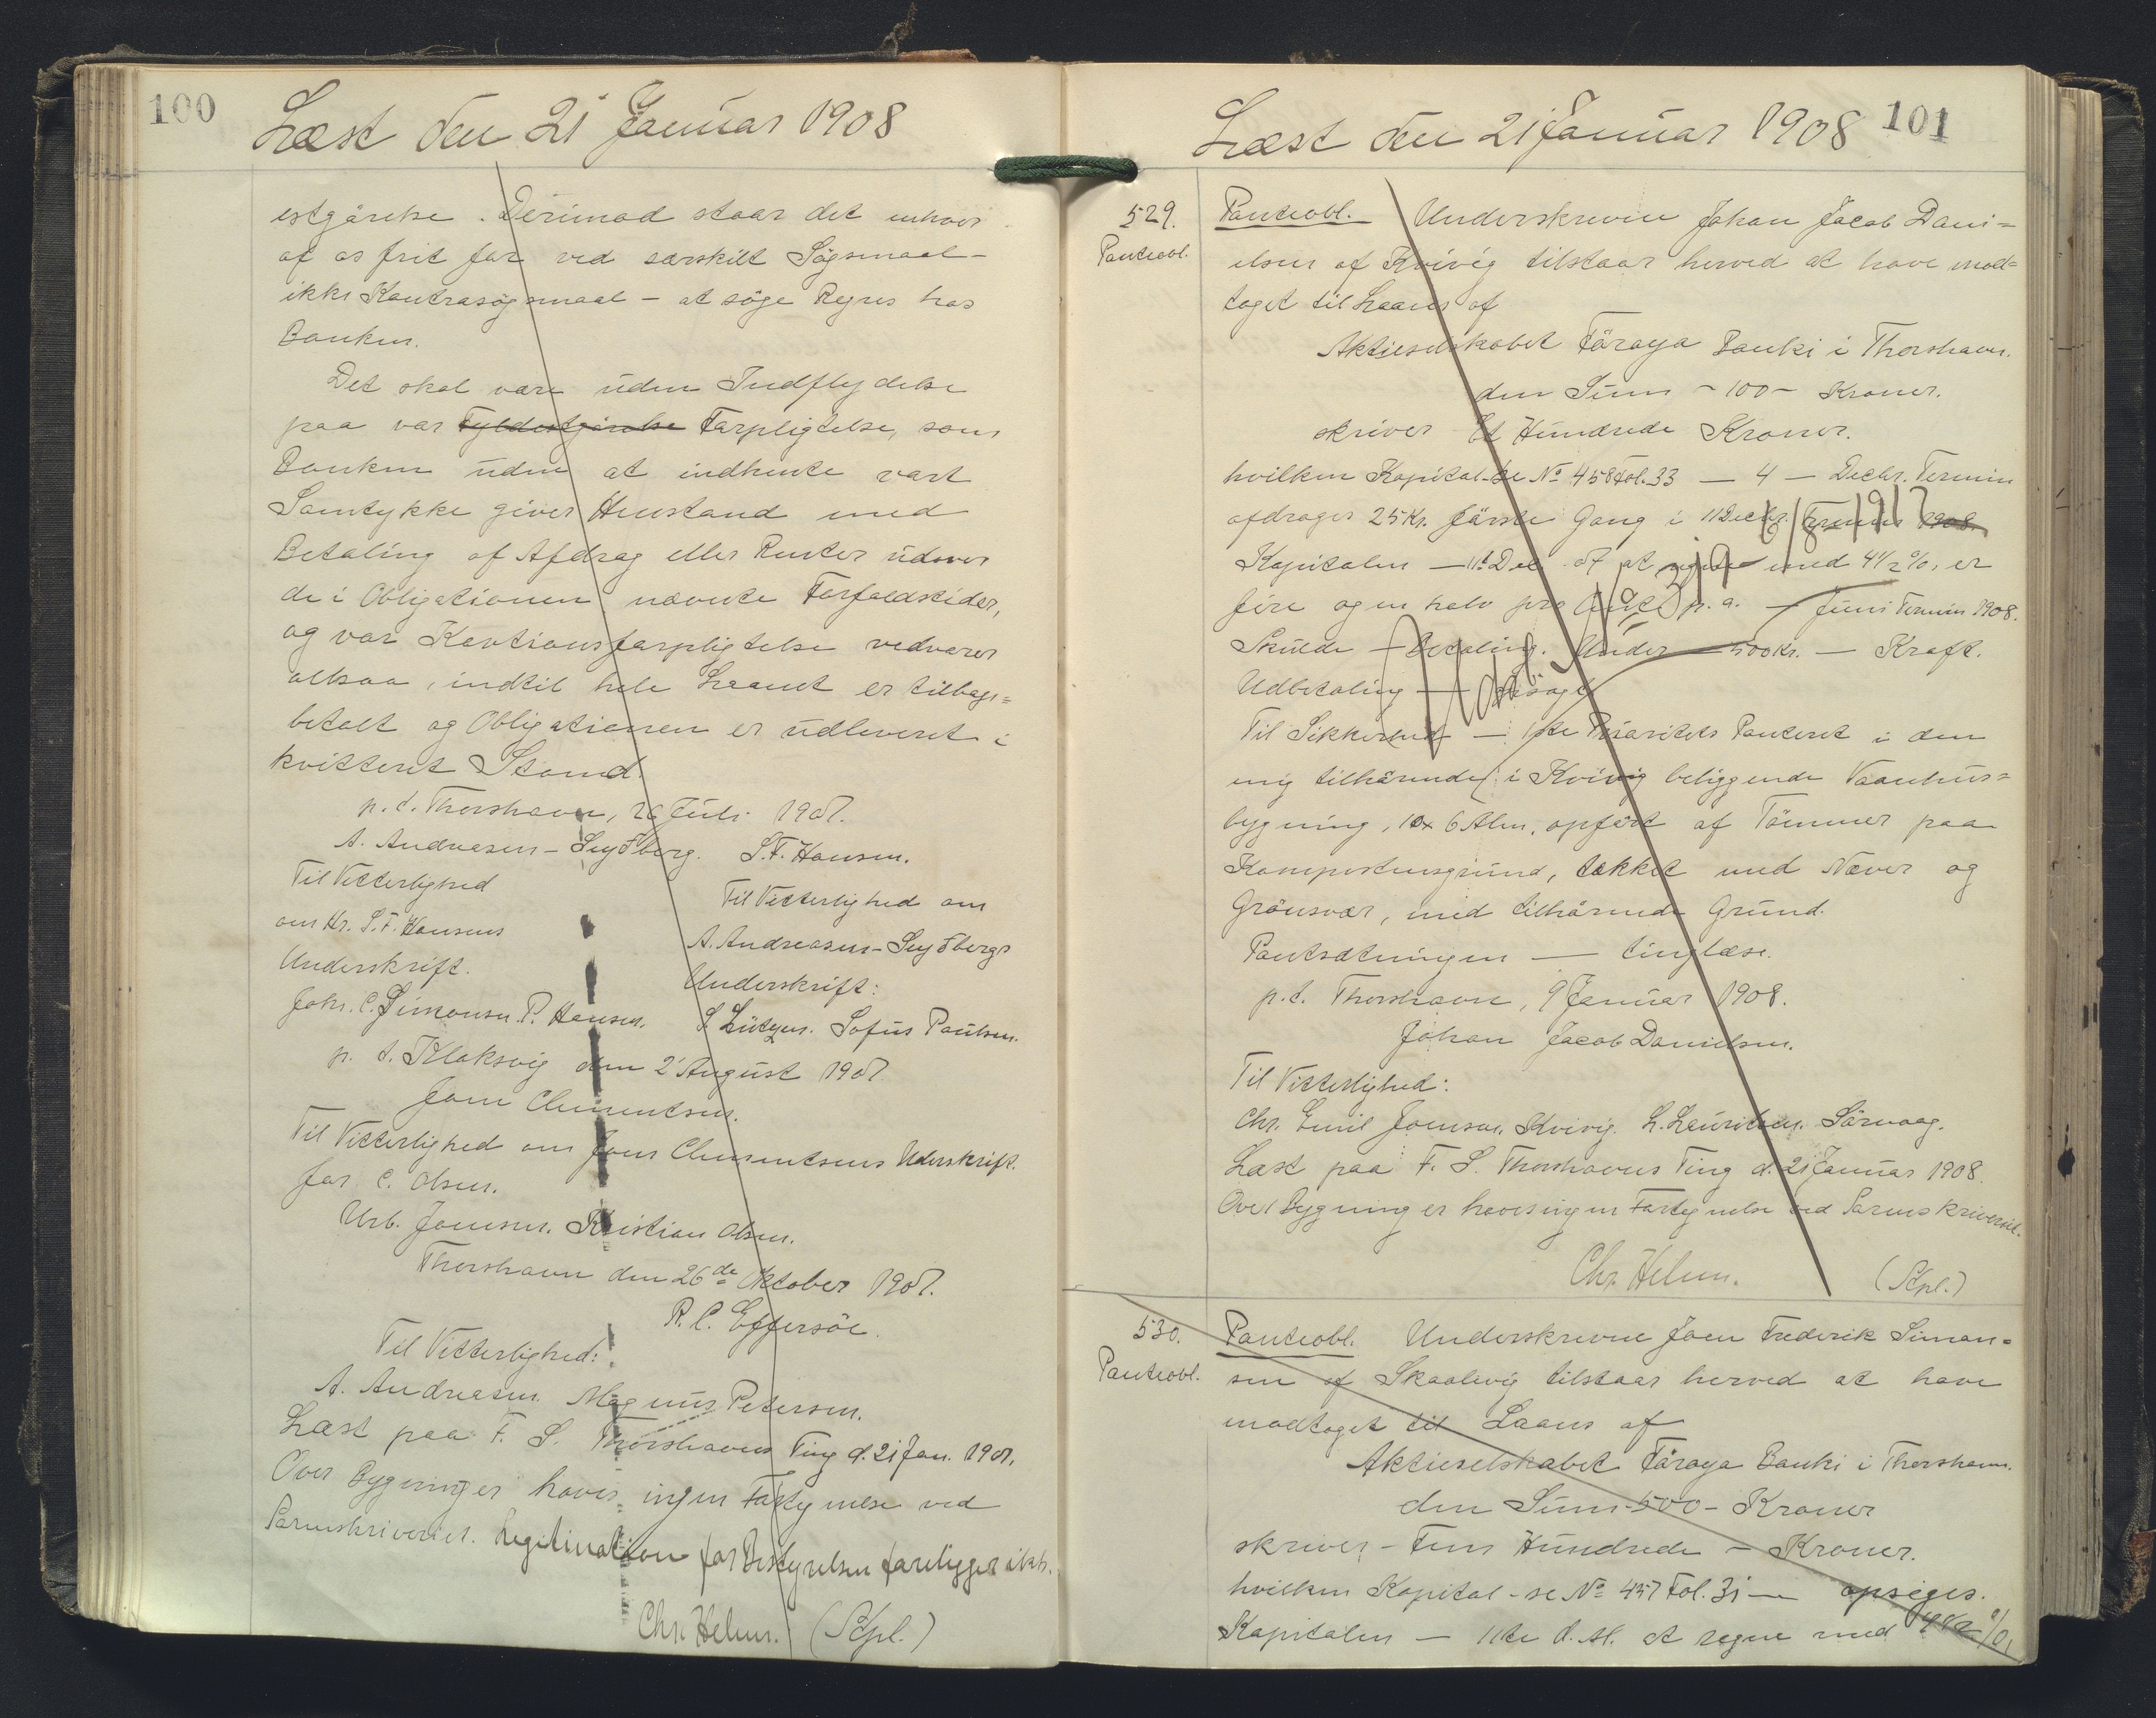 100
Læst den 21 Januar 1908
estgörelse. Derimod staar det enhver
af os frit for ved særskilt Sögsmaal -
ikke Kontrasögsmaal - at söge Regres hos
Banken.
Det skal være uden Indflydelse
paa vor Fyldestgörelse Forpligtelse, som
Banken uden at indhente vort
Samtykke giver Henstand med
Betaling af Afdrag eller Renter udover
de i Obligationen nævnte Forfaldstider,
og vor Kautionsforpligtelse vedvarer
altsaa, indtil hele Laanet er tilbage=
betalt og Obligationen er udleveret i
kvitteret Stand.
p. t. Thorshavn, 26 Juli 1907.
A. Andreasen - Seyðberg. S. F. Hansen.
Til Vitterlighed
om Hr. S. F. Hansens
Underskrift.
Johs. C. Simonsen. P. Hansen.
Til Vitterlighed om
A. Andreasen - Seyðbergs
Underskrift:
S. Lützen. Sofus Poulsen.
p. t. Klaksvig den 2' August 1907.
Joen Clementsen.
Til Vitterlighed om Joen Clementsens Uderskrift.
for C. Olsen.
Urb. Joensen. Kristian Olsen.
Thorshavn den 26de Oktober 1907.
R. C. Effersöe.
Til Vitterlighed:
A. Andreasen. Magnus Petersen.
Læst paa F. S. Thorshavns Ting d. 21 Jan. 1907.
Over Bygninger haves ingen Fortegnelse ved
Sorenskriveriet. Legitimation for Bestyrelsen foreligger ikke.
Chr. Helms. (Stpl.)
Læst den 21 Januar 1908 101
529. Panteobl. Underskrevne Johan Jacob Dani=
Panteobl. elsen af Kvivig tilstaar herved at have mod=
taget til Laans af
Aktieselskabet Föroya Banki i Thorshavn.
den Sum - 100 - Kroner.
skriver Et Hundrede Kroner.
hvilken Kapital - se No 458 Fol. 33 — 4 — Decbr. Termin
afdrages 25 Kr. förste Gang i 11 Decbr. Termin 1908.
Kapitalen — 11' Dec. 07 at regne med 4 1/2 %, er
fire og en halv pro cent p. a. — Juni Termin 1908.
Skulde — Betaling. Under — 500 Kr. — Kraft.
Udbetaling —
Til Sikkerhed — 1ste Prioritets Panteret i den
mig tilhörende, i Kvivig beliggende Vaanhus=
bygning, 10 x 6 Alen, opfört af Tömmer paa
Kampestensgrund, tækket med Næver og
Grönsvær, med tilhörende Grund.
Pantsætningen — tinglæse.
p. t. Thorshavn, 9 Januar 1908.
Johan Jacob Danielsen.
Til Vitterlighed:
Chr. Emil Joensen. Kvivig. L. Lauritsen. Sörvaag.
Læst paa F. S. Thorshavns Ting d. 21 Januar 1908.
Over Bygning er haves ingen Fortegnelse ved Sorenskriveriet.
Chr. Helms. (Stpl.)
530. Panteobl. Underskrevne Joen Frederik Simon=
Panteobl. sen af Skaalevig tilstaar herved at have
modtaget til Laans af
Aktieselskabet Föroya Banki i Thorshavn.
den Sum - 500 - Kroner
skriver - Fem Hundrede - Kroner.
hvilken Kapital - se No 457 Fol. 31 — opsiges.
Kapitalen — 11te d. M. at regne med 4 1/2 %,